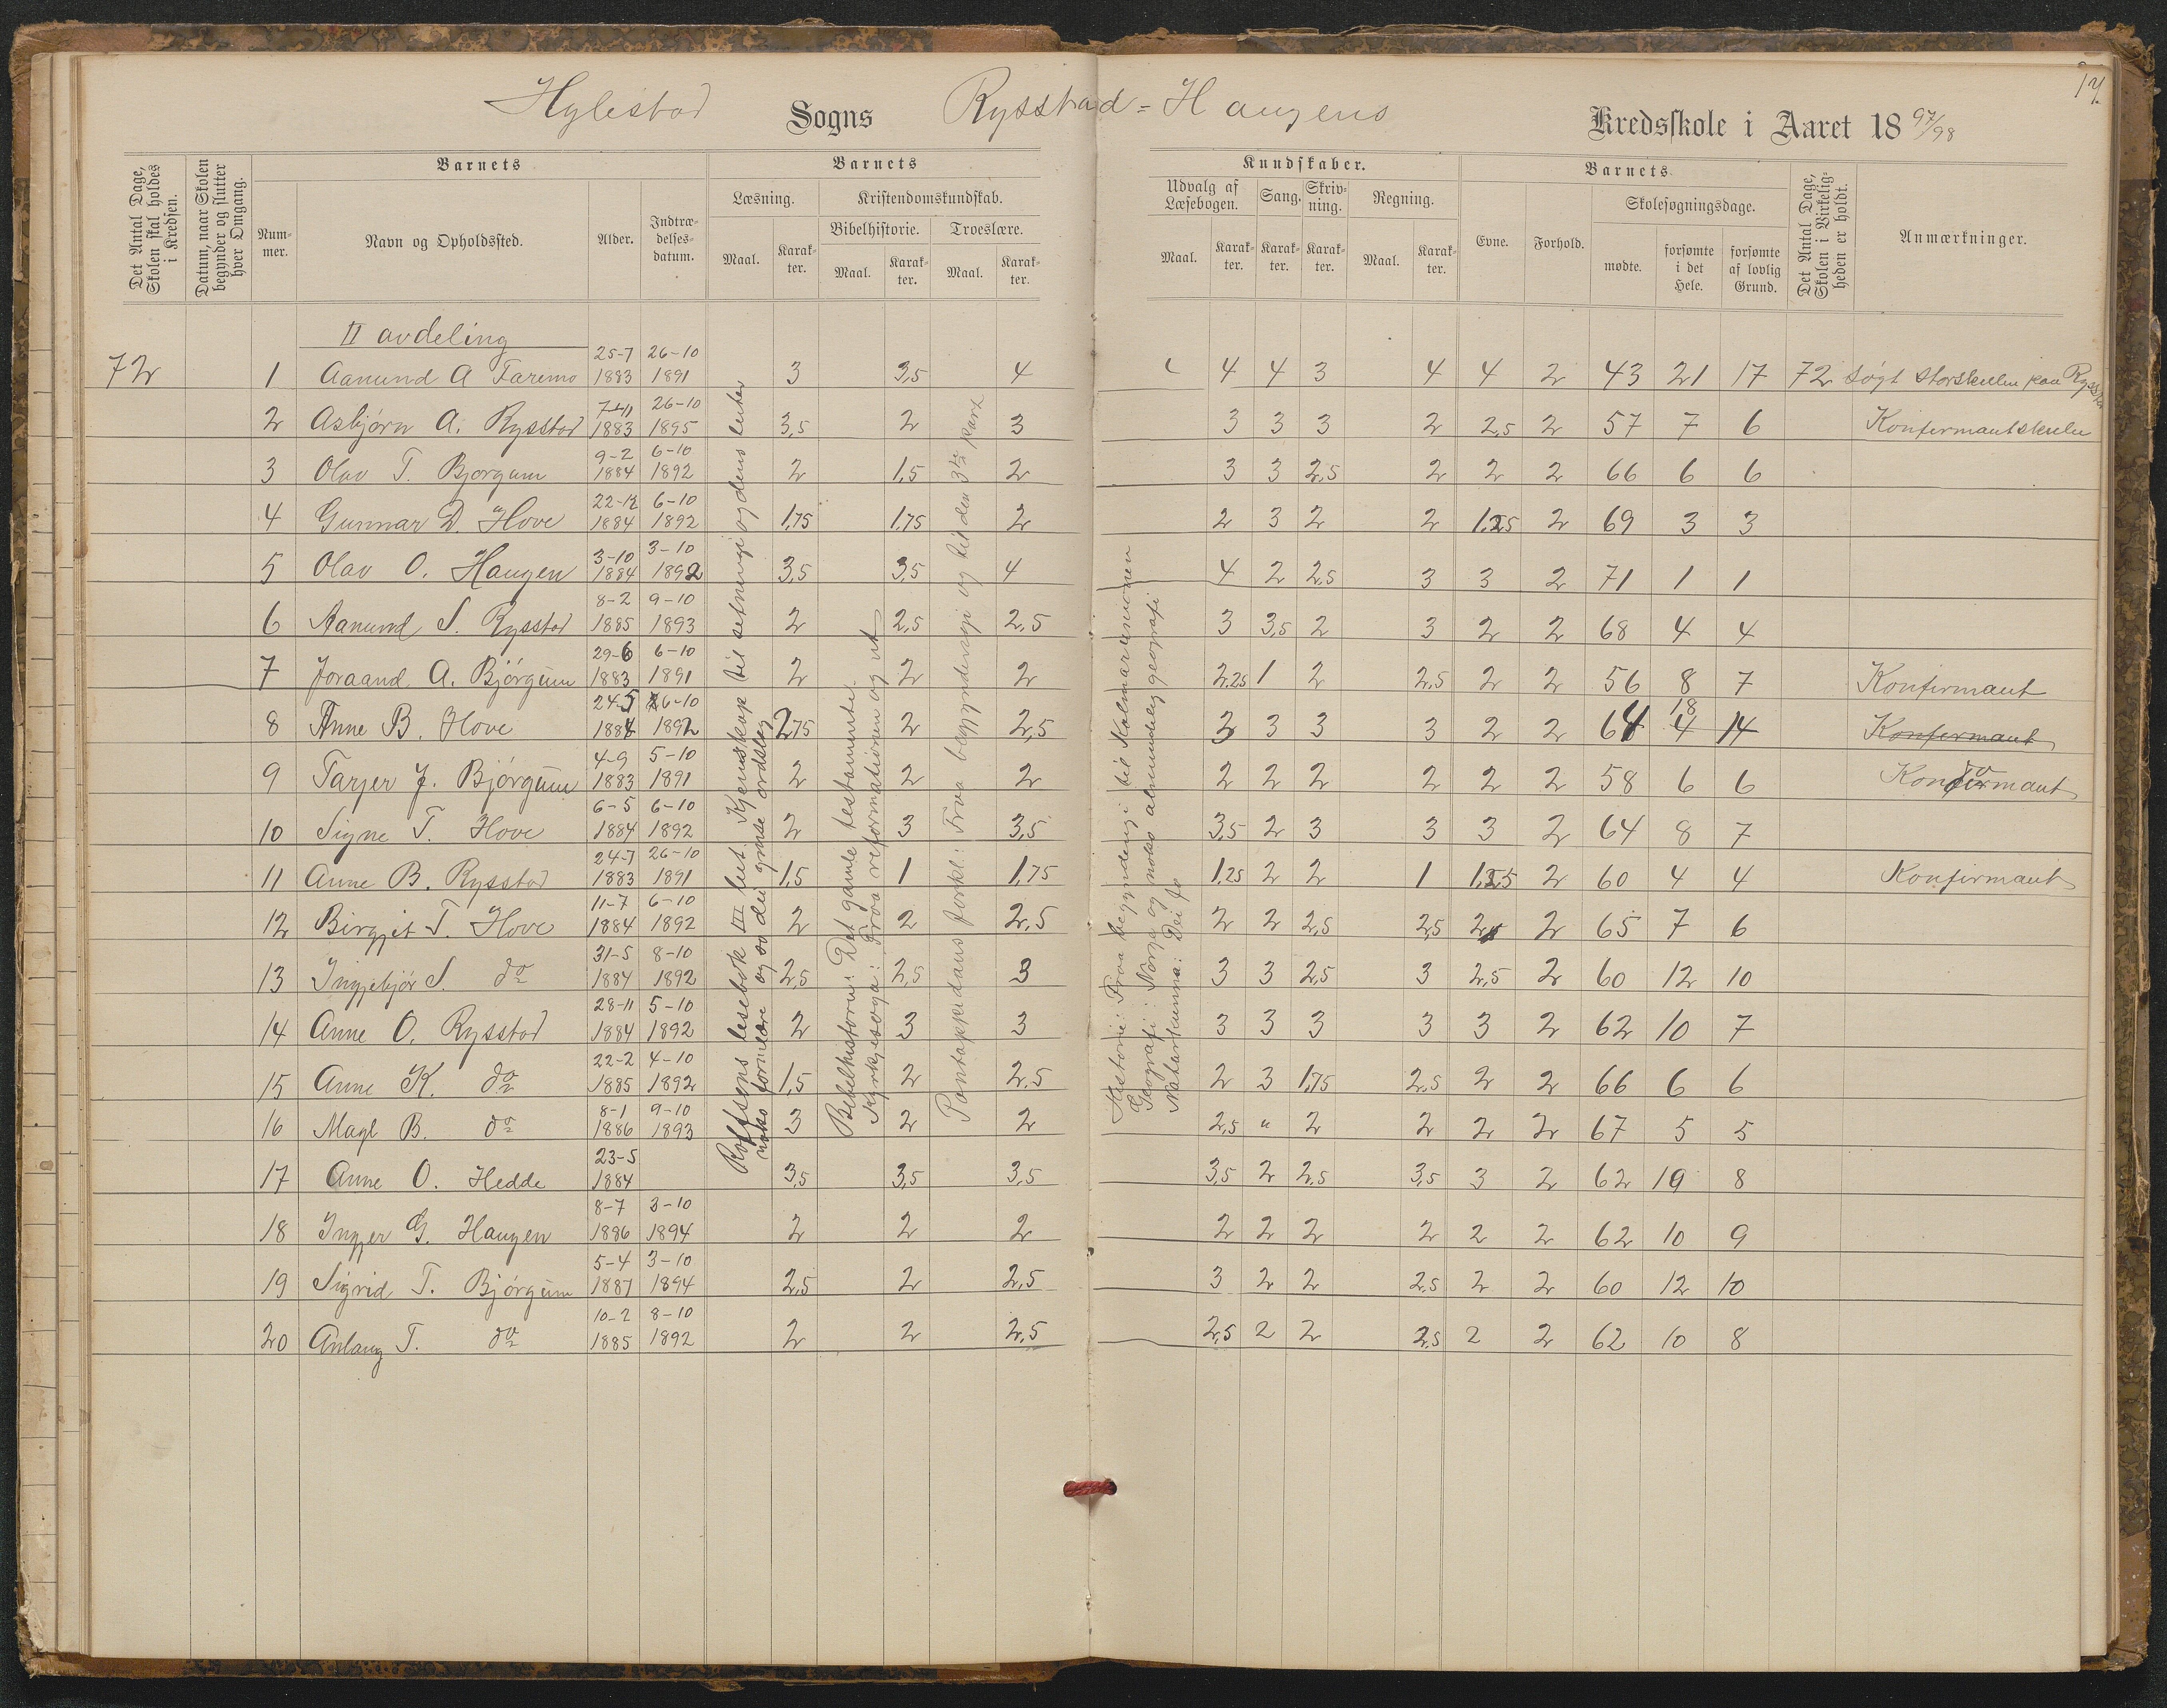 17
Hylestad Sogns Rysstad = Haugens Kredsskole i Aaret 1897/98
Det Antal Dage, Skolen skal holdes i Kredsen.
Datum, naar Skolen begynder og slutter hver Omgang.
Barnets
Nummer.
Navn og Opholdssted.
Alder.
Indtrædelsesdatum.
Barnets
Læsning.
Maal.
Karakter.
Kristendomskundskab.
Bibelhistorie.
Maal.
Karakter.
Troeslære.
Maal.
Karakter.
Kundskaber.
Udvalg af Læsebogen.
Maal.
Karakter.
Sang.
Karakter.
Skrivning.
Karakter.
Regning.
Maal.
Karakter.
Barnets
Evne.
Forhold.
Skolesøgningsdage.
mødte.
forsømte i det Hele.
forsømte af lovlig Grund.
Det Antal Dage, Skolen i Virkeligheden er holdt.
Anmærkninger.
II avdeling
72 1 Aanund A Faremo 25-7 1883 26-10 1891 3 3,5 4 4 4 3 4 4 2 43 21 17 72 søgt storskulen paa Rysst
2 Asbjørn A. Rysstad 7-11 1883 26-10 1895 3,5 2 3 3 3 3 2 2,5 2 57 7 6 Konfirmantskule
3 Olav T. Bjorgum 9-2 1884 6-10 1892 2 1,5 2 3 3 2,5 2 2 2 66 6 6
4 Gunnar D. Hove 22-12 1884 6-10 1892 1,75 1,75 2 2 3 2 2 1,25 2 69 3 3
5 Olav O. Haugen 3-10 1884 3-10 1892 3,5 3,5 4 4 2 2,5 3 3 2 71 1 1
6 Aanund S. Rysstad 8-2 1885 9-10 1893 2 2,5 2,5 3 3,5 2 3 2 2 68 4 4
7 Joraand A. Bjørgum 29-6 1883 6-10 1891 2 2 2 2,25 1 2 2,5 2 2 56 8 7 Konfirmant
8 Anne B. Hove 24-5 1884 26-10 1892 2,75 2 2,5 3 3 3 3 2 2 64 18 4 14 Konfirmant
9 Tarjer J. Bjørgum 4-9 1883 5-10 1891 2 2 2 2 2 2 2 2 2 58 6 6 Konfirmant
10 Signe T. Hove 6-5 1884 6-10 1892 2 3 3,5 3,5 2 3 3 3 2 64 8 7
11 Anne B. Rysstad 24-7 1883 26-10 1891 1,5 1 1,75 1,25 2 2 1 1,25 2 60 4 4 Konfirmant
12 Birgjit T. Hove 11-7 1884 6-10 1892 2 2 2,5 2 2 2,5 2,5 2 2 65 7 6
13 Ingjebjør S. do 31-5 1884 8-10 1892 2,5 2,5 3 3 3 2,5 3 2,5 2 60 12 10
14 Anne O. Rysstad 28-11 1884 5-10 1892 2 3 3 3 3 3 3 3 2 62 10 7
15 Anne K. do 22-2 1885 4-10 1892 1,5 2 2,5 2 3 1,75 2,5 2 2 66 6 6
16 Magl B. do 8-1 1886 9-10 1893 3 2 2 2,5 " 2 2 2 2 67 5 5
17 Anne O. Hedde 23-5 1884 3,5 3,5 3,5 3,5 2 2,5 3,5 3 2 62 10 8
18 Ingjer G. Haugen 8-7 1886 3-10 1894 2 2 2 2 2 2 2 2 2 62 10 9
19 Sigrid T. Bjørgum 5-4 1887 3-10 1894 2,5 2 2,5 3 2 2 2,5 2 2 60 12 10
20 Anlaug T. do 10-2 1885 8-10 1892 2 2 2,5 2,5 2 2 2,5 2 2 62 10 8
Rolfsens lesebok III het. Kjenskap til setningi og dens leiter
noko formlære og so dei grnse ordslag
Bibelhistorie: Det gamle testamente.
Kyrkjesoga: Fraa reformationen og ut
Pontoppidans forkl.: Fraa begyndelsgi og til den 3die part
Historie: Fraa begyndingi til Kalmarunionen
Geografi: Norge og noko almindeleg geografi
Naturkunna: Dei fo